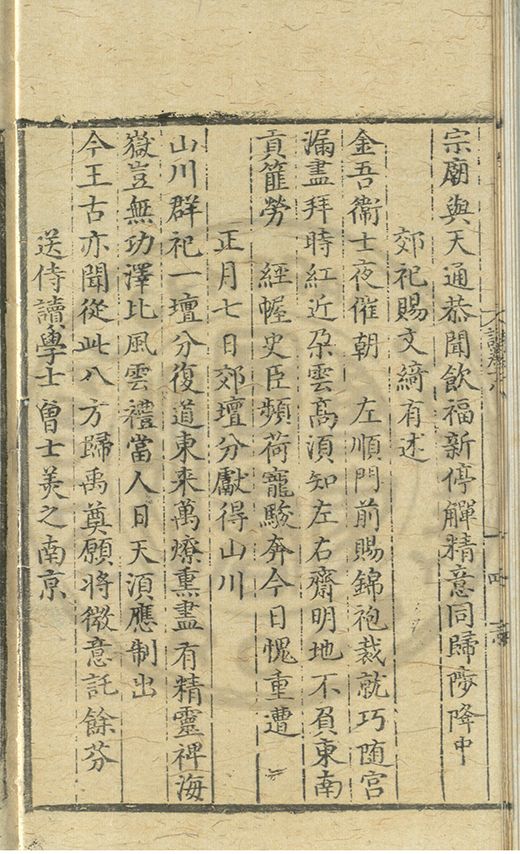 宗廟與天通恭聞飲福新停觶精意同歸陟降中
郊祀賜文綺有述
金吾衛士夜催朝　左順門前賜錦袍裁就巧随宫
漏盡拜時紅近朶雲髙湏知左右齋明地不負東南
貢篚勞　經幄史臣頻荷寵駿奔今日愧重遭
正月七日郊壇分獻得山川
山川群祀一壇分復道東来萬燎熏盡有精靈裨海
嶽豈無功澤比風雲禮當人日天湏應制出
今王古亦聞從此八方歸禹奠願将微意託餘芬
送侍讀學士曾士美之南京